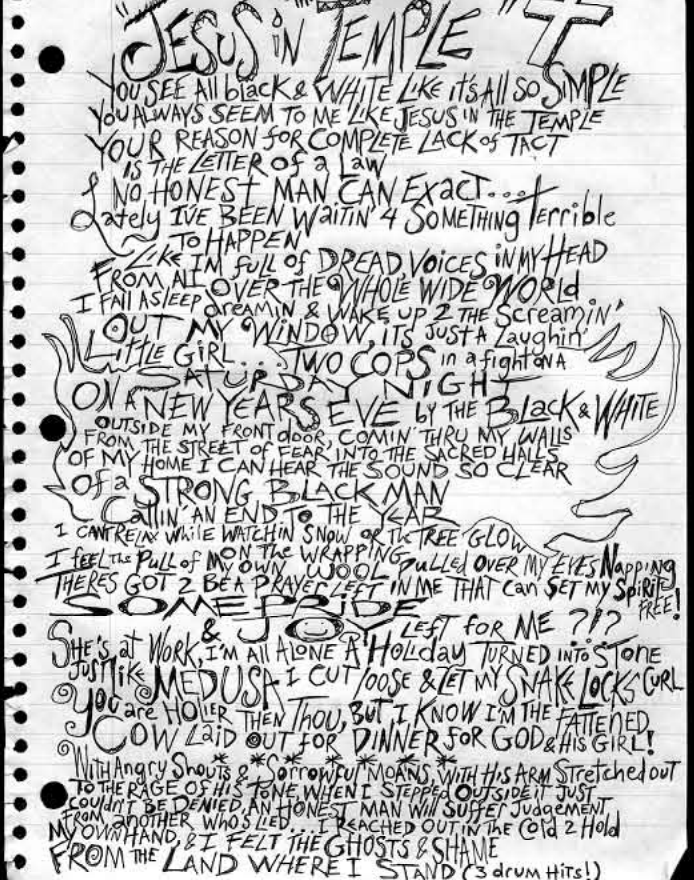 "JESUS iN TEMPLE"
YOU SEE All black & WHITE LIKE it's All SO SIMPLE
YOU ALWAYS SEEM TO ME LIKE JESUS IN THE TEMPLE
YOUR REASON for COMPLETE LACK of TACT
IS THE LETTER OF a LAW
NO HONEST MAN CAN Exact...
Lately I'VE BEEN WAITIN' 4 SOMETHING Terrible
TO HAPPEN
LIKE IM full OF DREAD, VOICES iN MY HEAD
FROM All OVER THE WHOLE WIDE WORLD
I FAll ASleep dreamin & WAKE UP 2 THE Screamin'
OUT MY WINDOW, iTS JUST A Laughin'
LITTLE GIRL... TWO COPS in a fight ON A
SATURDAY NIGHT
ON A NEW YEARS EVE by THE Black & WHITE
OUTSIDE MY FRONT door, COMIN' THRU MY WALLS
FROM THE STREET of FEAR INTO THE SACRED HALLS
OF MY HOME I CAN HEAR THE SOUND SO CLEAR
Of a STRONG BLACK MAN
Callin' AN END TO THE YEAR
I CANT RELAX While WATCHIN SNOW OR The TREE GLOW
ON THE WRAPPING
I feel The PULL of MY OWN WOOL pulled OVER MY EYES Napping
THERES GOT 2 BE A PRAYER LEFT IN ME THAT Can SET MY Spirit FREE!
SOME PRIDE
& JOY LEFT for ME ?!?
SHE'S at WORK, I'M All ALONE A HOliday TURNED INTO STONE
JUST like MEDUSA I CUT loose & LET MY SNAKE LOCKS CURL
YOU are HOLIER THEN Thou, BUT I KNOW I'M THE FATTENED
COW LAID OUT FOR DINNER FOR GOD & HIS GIRL!
With Angry Shouts & Sorrowful MOANS, WITH HIS ARM Stretched out
TO THE RAGE OF HIS TONE, WHEN I STEPPED OUTSIDE iT JUST
Couldn't BE DENIED, AN HONEST MAN Will SUFFER JUDGEMENT
FROM ANOTHER WHO'S LIED... I REACHED OUT IN THE Cold 2 Hold
MY OWN HAND, & I FELT THE GHOSTS & SHAME
FROM THE LAND WHERE I STAND (3 drum HiTS!)